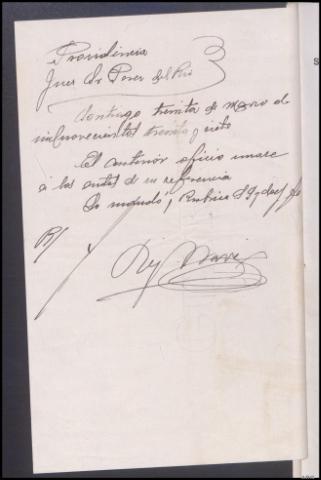 Providencia
Juez Sr Perez del Rio
Santiago treinta de Marzo de
milnovecientos treinta y siete
El anterior oficio unase
a los autos de su referencia
Lo mandó y Rubrica S Sª doy fe